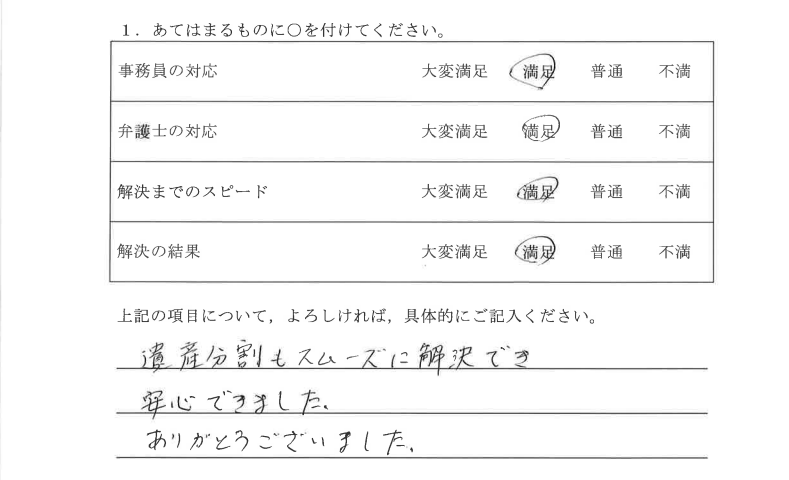 1．あてはまるものに○を付けてください。
事務員の対応 大変満足 満足 普通 不満
弁護士の対応 大変満足 満足 普通 不満
解決までのスピード 大変満足 満足 普通 不満
解決の結果 大変満足 満足 普通 不満
上記の項目について，よろしければ，具体的にご記入ください。
遺産分割もスムーズに解決でき
安心できました。
ありがとうございました。